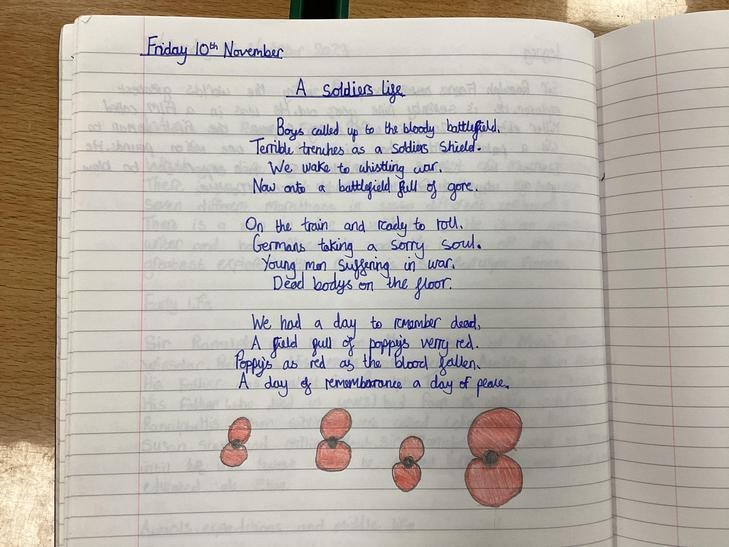 Friday 10th November
A soldiers life
Boys called up to the bloody battlefield.
Terrible trenches as a soldiers shield.
We wake to whistling war.
Now onto a battlefield full of gore.
On the train and ready to roll.
Germans taking a sorry soul.
Young men suffering in war.
Dead bodys on the floor.
We had a day to remember dead,
A field full of poppy's verry red.
Poppy's as red as the blood fallen.
A day of rememberance a day of peace.